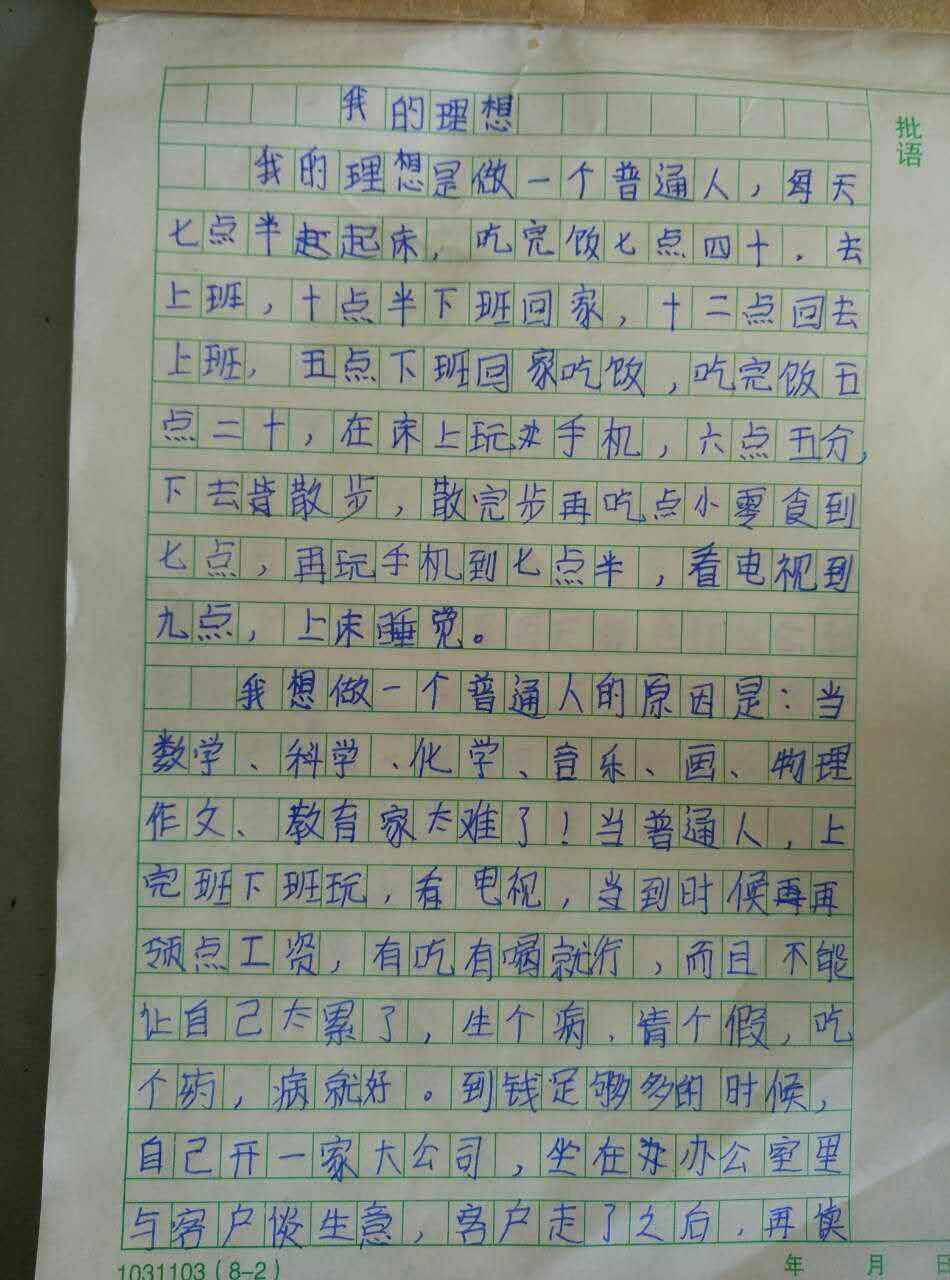 我的理想
批语
我的理想是做一个普通人，每天
七点半起起床，吃完饭七点四十．去
上班，十点半下班回家，十二点回去
上班，五点下班回家吃饭，吃完饭五
点二十，在床上玩手机，六点五分，
下去散步，散完步再吃点小零食到
七点，再玩手机到七点半，看电视到
九点，上床睡觉。
我想做一个普通人的原因是：当
数学、科学、化学、音乐、画、物理
作文、教育家太难了！当普通人，上
完班下班玩，看电视，当到时候再再
领点工资，有吃有喝就行，而且不能
让自己太累了，生个病，请个假，吃
个药，病就好。到钱足够多的时候，
自己开一家大公司，坐在办办公室里
与客户谈生意，客户走了之后，再
1031103(8-2)
年 月 日